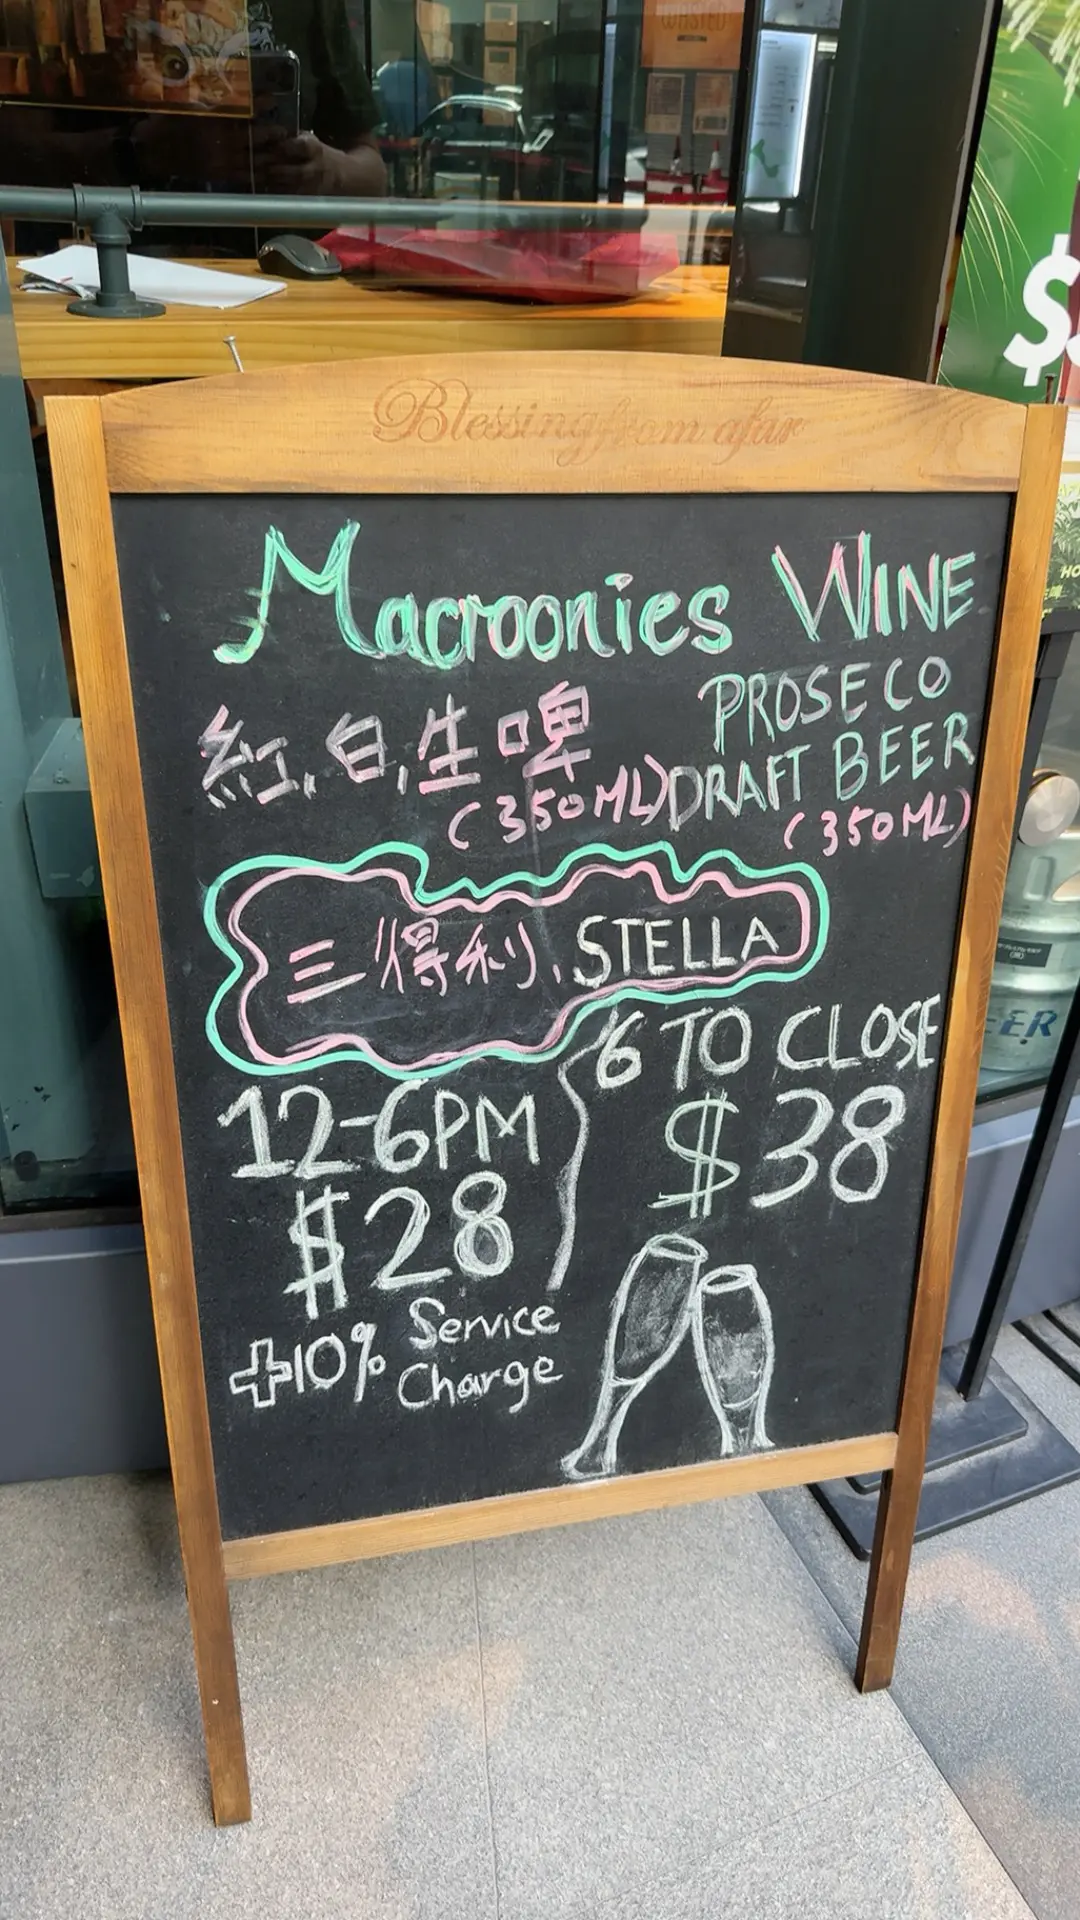 WASTED
$
Blessing from afar
Macroonies WINE
PROSECO
紅,白,生啤
DRAFT BEER
(350ML)
(350ML)
三得利,STELLA
6 TO CLOSE
12-6PM
$38
$28
+10% Service
Charge
HO
EER